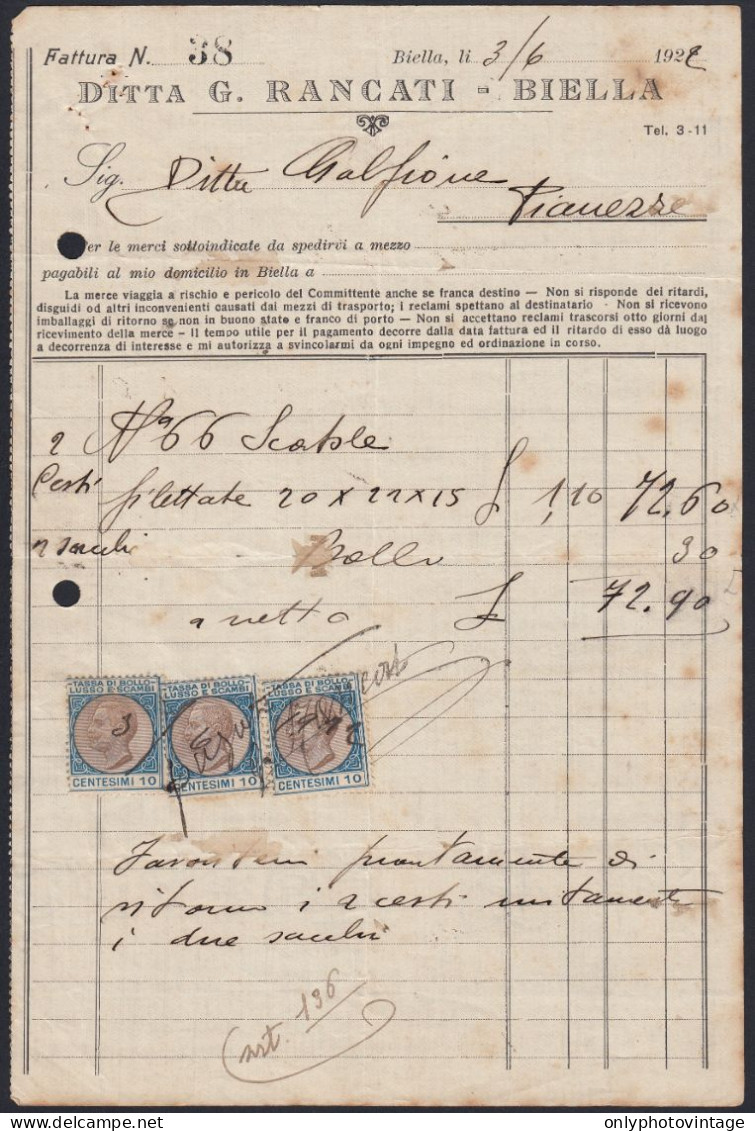 Fattura N. 38 Biella, li 3/6 1922
DITTA G. RANCATI - BIELLA
Tel. 3-11
Sig. Ditta Galfione
Pianezze
Per le merci sottoindicate da spedirvi a mezzo
pagabili al mio domicilio in Biella a
La merce viaggia a rischio e pericolo del Committente anche se franca destino — Non si risponde dei ritardi,
disguidi od altri inconvenienti causati dai mezzi di trasporto; i reclami spettano al destinatario - Non si ricevono
imballaggi di ritorno se non in buono stato e franco di porto — Non si accettano reclami trascorsi otto giorni dal
ricevimento della merce — Il tempo utile per il pagamento decorre dalla data fattura ed il ritardo di esso dà luogo
a decorrenza di interesse e mi autorizza a svincolarmi da ogni impegno ed ordinazione in corso.
2 N° 66 Scatole
Cesti filettate 20 x 22 x 15 £ 1,10 72.60
2 sacchi Bollo 30
a netto £ 72.90
TASSA DI BOLLO LUSSO E SCAMBI TASSA DI BOLLO LUSSO E SCAMBI TASSA DI BOLLO LUSSO E SCAMBI
3
CENTESIMI 10 CENTESIMI 10 CENTESIMI 10
prontamente di
ritorno i 2 cesti unitamente
i due sacchi
art. 136
onlyphotovintage.com